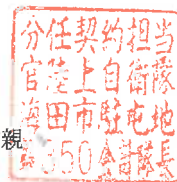 分任契約担当
官陸上自衛隊
海田市駐屯地
親
第350会計隊長